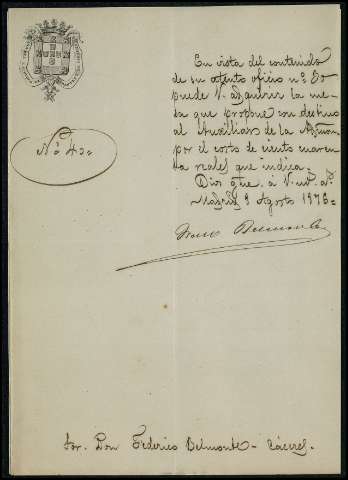 En vista del contenido
de su atento oficio nº 50
puede V. adquirir la me-
sa que propone con destino
al Auxiliar de la Admon
por el costo de ciento cuaren
ta reales que indica.
Dios gue. á V. m. a.
Madrid 9 Agosto 1876=
Nº 43=
Belmonte
Sor. Don Federico Belmonte - Cáceres.